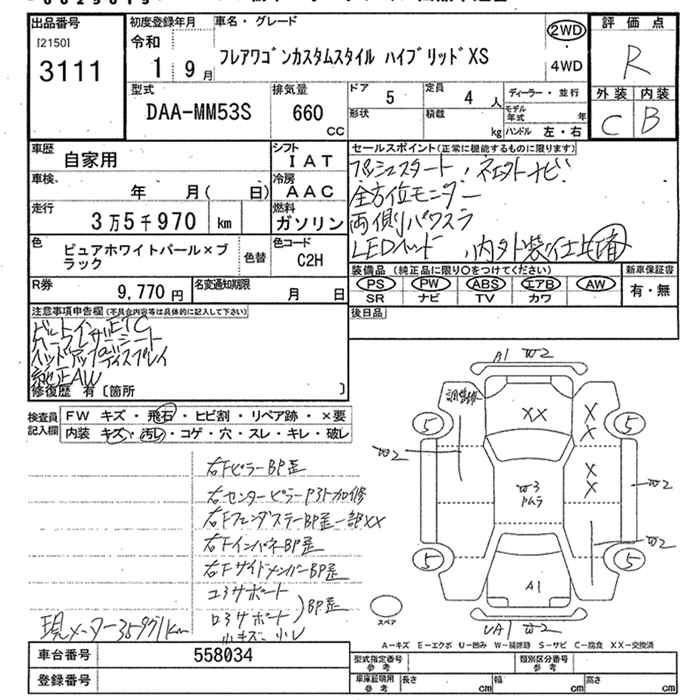 出品番号
[2150]
3111
初度登録年月
令和
1 9月
車名・グレード
フレアワゴンカスタムスタイル ハイブリッドXS
2WD
4WD
評価点
R
外装 内装
C B
型式
DAA-MM53S
排気量
660
CC
ドア
5
定員
4 人
形状
積載
kg
ディーラー・並行
モデル年式 年
ハンドル 左・右
車歴
自家用
シフト
IAT
車検
年 月( 日)
冷房
AAC
走行
3万5千970 km
燃料
ガソリン
色
ピュアホワイトパール×ブラック
色替
色コード
C2H
R券
9,770円
名変通知期限
月 日
セールスポイント(正常に機能するものに限ります)
プッシュスタート、コネクトナビ
全方位モニター
両側パワスラ
LEDヘッド、内外装仕上済
装備品 (純正品に限り○をつけてください)
PS PW ABS エアB AW
SR ナビ TV カワ
新車保証書
有・無
後日品
注意事項申告欄(不具合内容等は具体的に記入して下さい)
ビルトインETC
ハーフレザーシート
ヘッドアップディスプレイ
純正AW
修復歴 有 [箇所 ]
検査員記入欄
FW キズ・飛石・ヒビ割・リペア跡・×要
内装 キズ・汚レ・コゲ・穴・スレ・キレ・破レ
右FピラーBP歪
右センターピラーアウト加修
右FフェンダステーBP歪一部XX
右FインパネBP歪
右FサイドメンバーBP歪
コアサポート
ロアサポート
BP歪
小キズ・小凹
現メーター35971km
A1 W2
調整跡
XX
X
X
X
X
5
5
5
5
W2
W2
W2
W3
ルーフ
A1
UA1 W2
スペア
A−キズ E−エクボ U−凹み W−補修跡 S−サビ C−腐食 XX−交換済
車台番号
558034
登録番号
型式指定番号
参考
類別区分番号
参考
車庫証明用
参考
長さ cm
幅 cm
高さ cm